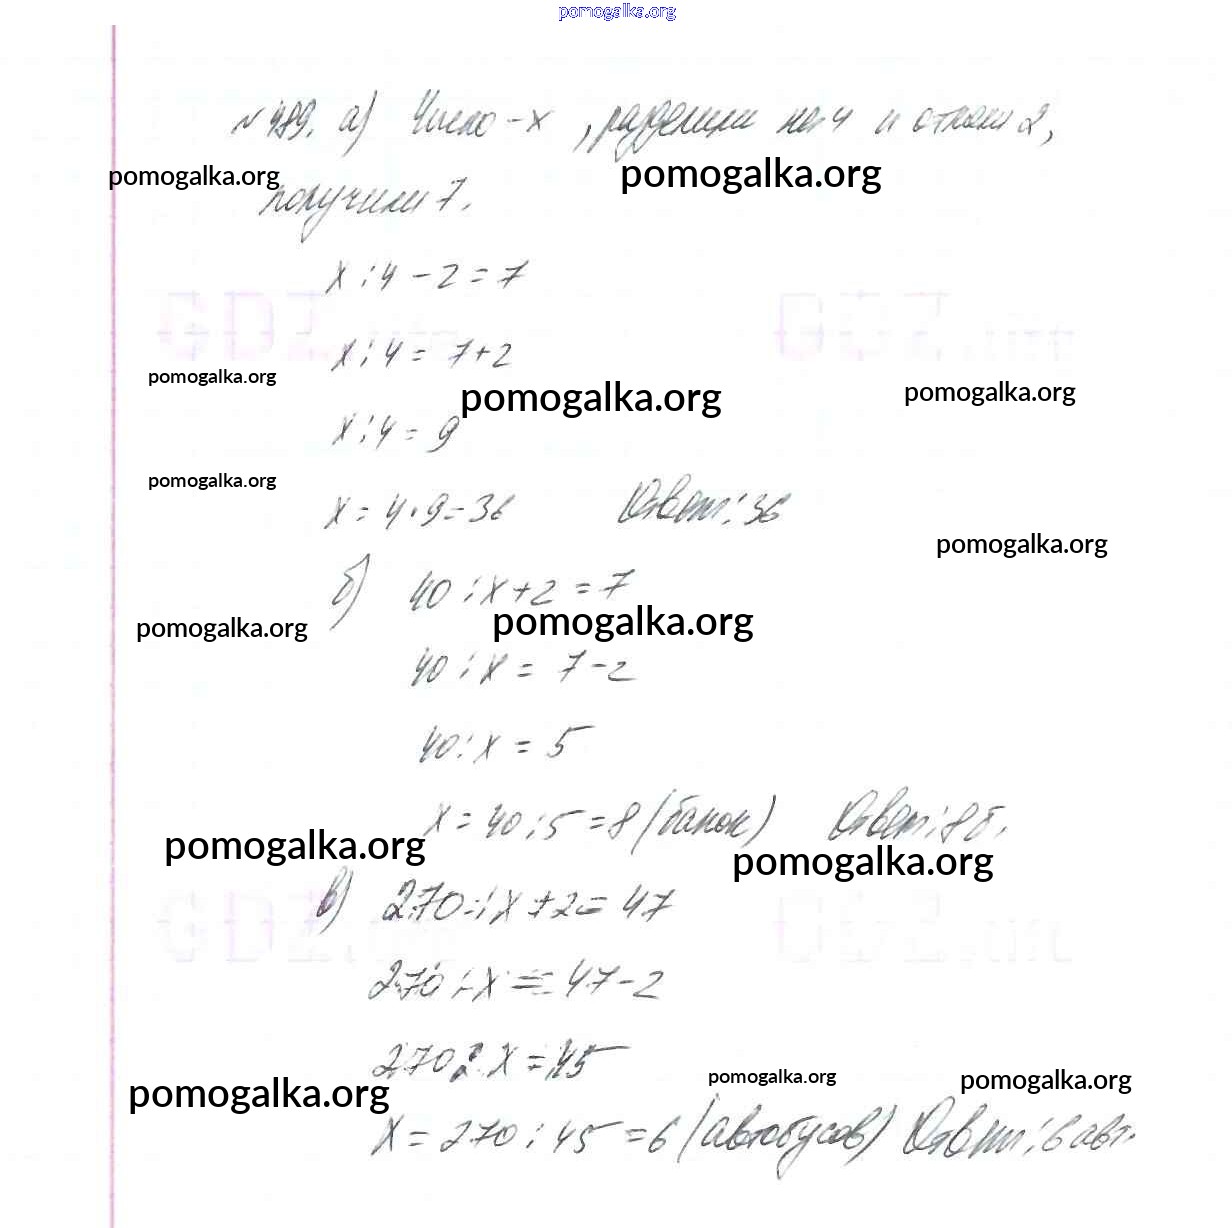 pomogalka.org
№ 489. а) Число - х, разделили на 4 и отняли 2,
pomogalka.org
pomogalka.org
получили 7.
х : 4 - 2 = 7
GDZ
GDZ
х : 4 = 7+2
pomogalka.org
pomogalka.org
pomogalka.org
х : 4 = 9
pomogalka.org
х = 4 · 9 = 36 Ответ: 36
pomogalka.org
б) 40 : х + 2 = 7
pomogalka.org
pomogalka.org
40 : х = 7 - 2
40 : х = 5
х = 40 : 5 = 8 (банок) Ответ: 8 б.
pomogalka.org
pomogalka.org
в) 270 : х + 2 = 47
GDZ
GDZ
270 : х = 47 - 2
270 : х = 45
pomogalka.org
pomogalka.org
pomogalka.org
х = 270 : 45 = 6 (автобусов) Ответ: 6 авт.